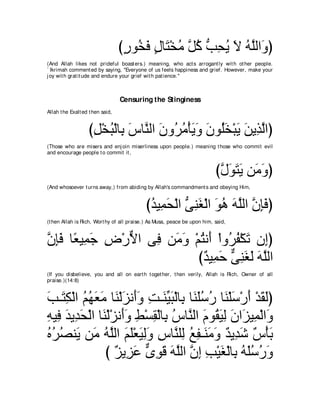 (وَاللَّهُ لَا يُحِبُّ كُلَّ مُخْتَالٍ فَخُورٍ)
(And Allah likes not prideful boasters.) meaning, who acts arrogantly with other people.
`Ikrimah commented by saying, "Everyone of us feels happiness and grief. However, make your
joy with gratitude and endure your grief with patience.''
Censuring the Stinginess
Allah the Exalted then said,
(الَّذِينَ يَبْخَلُونَ وَيَأْمُرُونَ النَّاسَ بِالْبُخْلِ)
(Those who are misers and enjoin miserliness upon people.) meaning those who commit evil
and encourage people to commit it,
(وَمَن يَتَوَلَّ)
(And whosoever turns away,) from abiding by Allah's commandments and obeying Him,
(فَإِنَّ اللَّهَ هُوَ الْغَنِىُّ الْحَمِيدُ)
(then Allah is Rich, Worthy of all praise.) As Musa, peace be upon him, said,
(إِن تَكْفُرُواْ أَنتُمْ وَمَن فِى الاٌّرْضِ جَمِيعًا فَإِنَّ
اللَّهَ لَغَنِىٌّ حَمِيدٌ)
(If you disbelieve, you and all on earth together, then verily, Allah is Rich, Owner of all
praise.)(14:8)
(لَقَدْ أَرْسَلْنَا رُسُلَنَا بِالْبَيِّنَـتِ وَأَنزَلْنَا مَعَهُمُ الْكِتَـبَ
وَالْمِيزَانَ لِيَقُومَ النَّاسُ بِالْقِسْطِ وَأَنزَلْنَا الْحَدِيدَ فِيهِ
بَأْسٌ شَدِيدٌ وَمَنَـفِعُ لِلنَّاسِ وَلِيَعْلَمَ اللَّهُ مَن يَنصُرُهُ
وَرُسُلَهُ بِالْغَيْبِ إِنَّ اللَّهَ قَوِىٌّ عَزِيزٌ )